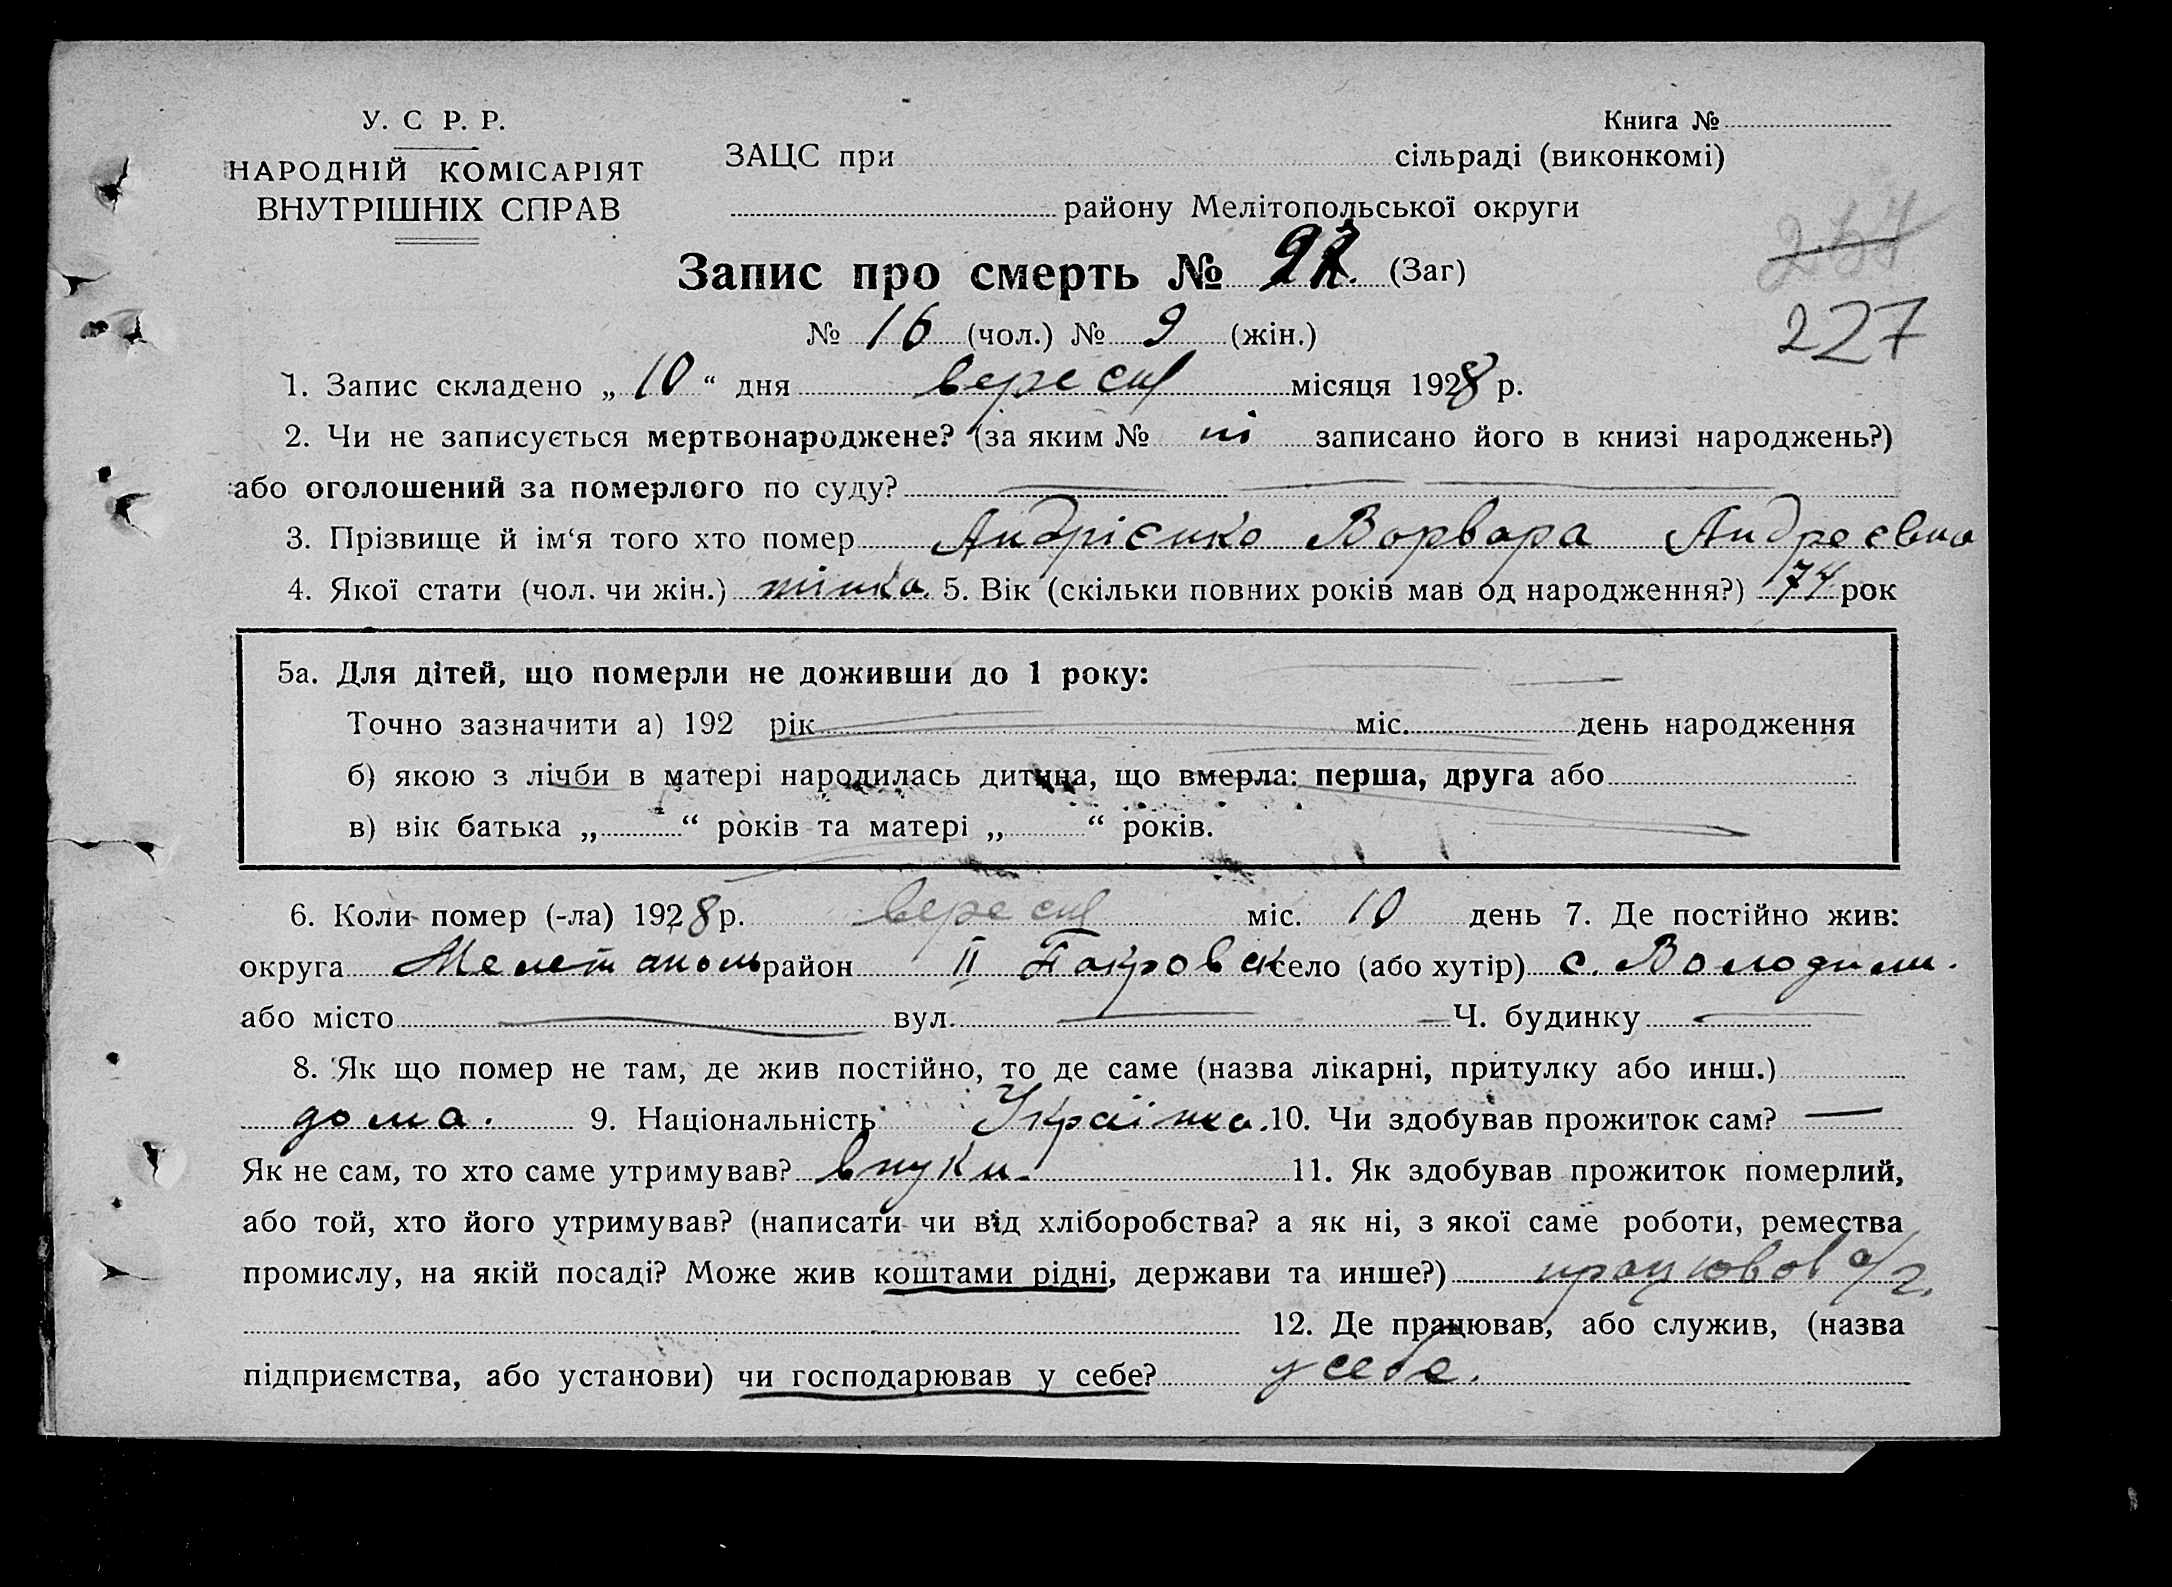 У. С Р. Р.
НАРОДНІЙ КОМІСАРІЯТ
ВНУТРІШНІХ СПРАВ
Книга №
ЗАЦС при сільраді (виконкомі)
району Мелітопольської округи
Запис про смерть № (Заг)
227
№ 16 (чол.) № 9 (жін.)
1. Запис складено „ 10 “ дня вересня місяця 1928 р.
2. Чи не записується мертвонароджене? (за яким № ні записано його в книзі народжень?)
або оголошений за померлого по суду?
3. Прізвище й ім‘я того хто помер Андрієнко Ворвара Андреєвна
4. Якої стати (чол. чи жін.) жінка. 5. Вік (скільки повних років мав од народження?) 74 рок
5а. Для дітей, що померли не доживши до 1 року:
Точно зазначити а) 192 рік міс. день народження
б) якою з лічби в матері народилась дитина, що вмерла: перша, друга або
в) вік батька „ “ років та матері „ “ років.
6. Коли помер (-ла) 1928 р. вересня міс. 10 день 7. Де постійно жив:
округа Мелетополь район ІІ Покровск село (або хутір) с. Володими.
або місто вул. Ч. будинку
8. Як що помер не там, де жив постійно, то де саме (назва лікарні, притулку або инш.)
дома. 9. Національність Українка. 10. Чи здобував прожиток сам? —
Як не сам, то хто саме утримував? внуки. 11. Як здобував прожиток померлий,
або той, хто його утримував? (написати чи від хліборобства? а як ні, з якої саме роботи, ремества
промислу, на якій посаді? Може жив коштами рідні, держави та инше?) працювов
12. Де працював, або служив, (назва
підприємства, або установи) чи господарював у себе? у себе.